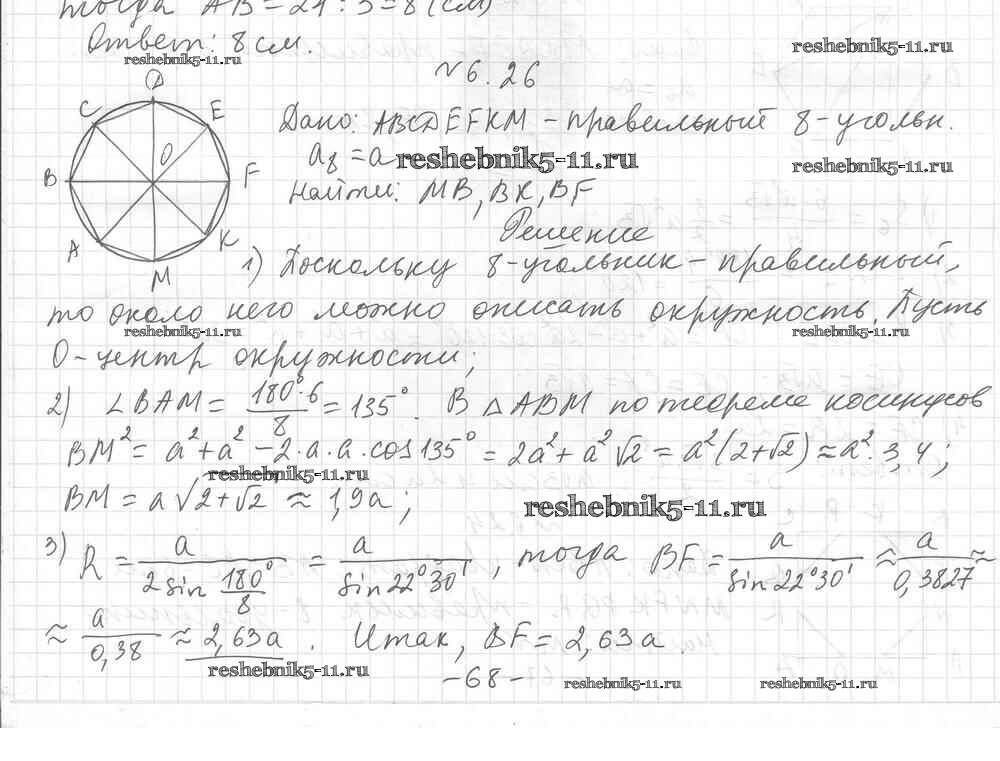 тогда AB = 24 : 3 = 8 (см)
Ответ: 8 см.
reshebnik5-11.ru
reshebnik5-11.ru
№6.26
D
C
E
O
B
F
A
K
M
Дано: ABCDEFKM – правильный 8-угольн.
a₈ = a
reshebnik5-11.ru
reshebnik5-11.ru
Найти: MB, BK, BF
Решение
1) Поскольку 8-угольник – правильный,
то около него можно описать окружность. Пусть
reshebnik5-11.ru
reshebnik5-11.ru
O – центр окружности;
2) ∠BAM = 180°·6/8 = 135°. В △ABM по теореме косинусов
BM² = a² + a² – 2·a·a·cos135° = 2a² + a²√2 = a²(2+√2) ≈ a²·3,4;
reshebnik5-11.ru
BM = a√2+√2 ≈ 1,9a;
reshebnik5-11.ru
3) R = a/2sin 180°/8 = a/sin22°30', тогда BF = a/sin22°30' ≈ a/0,3827 ≈
≈ a/0,38 ≈ 2,63a. Итак, BF = 2,63a.
reshebnik5-11.ru
–68–
reshebnik5-11.ru
reshebnik5-11.ru